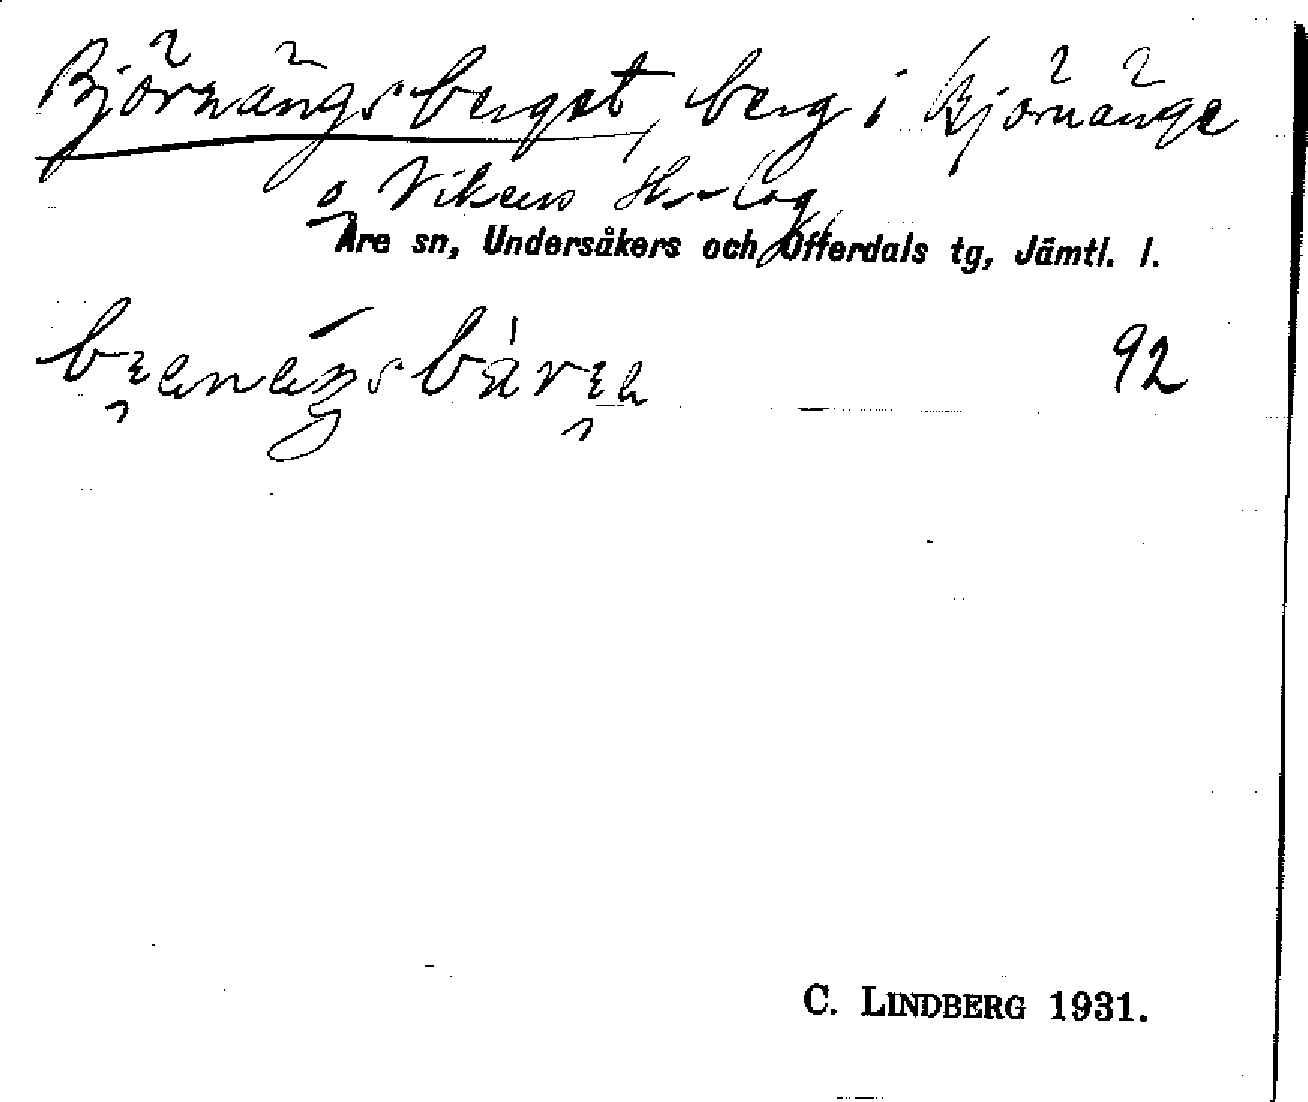 Björnängsberget, berg i Björnänge
o Vikens
Åre sn, Undersåkers och Offerdals tg, Jämtl. l.
92
C. LINDBERG 1931.